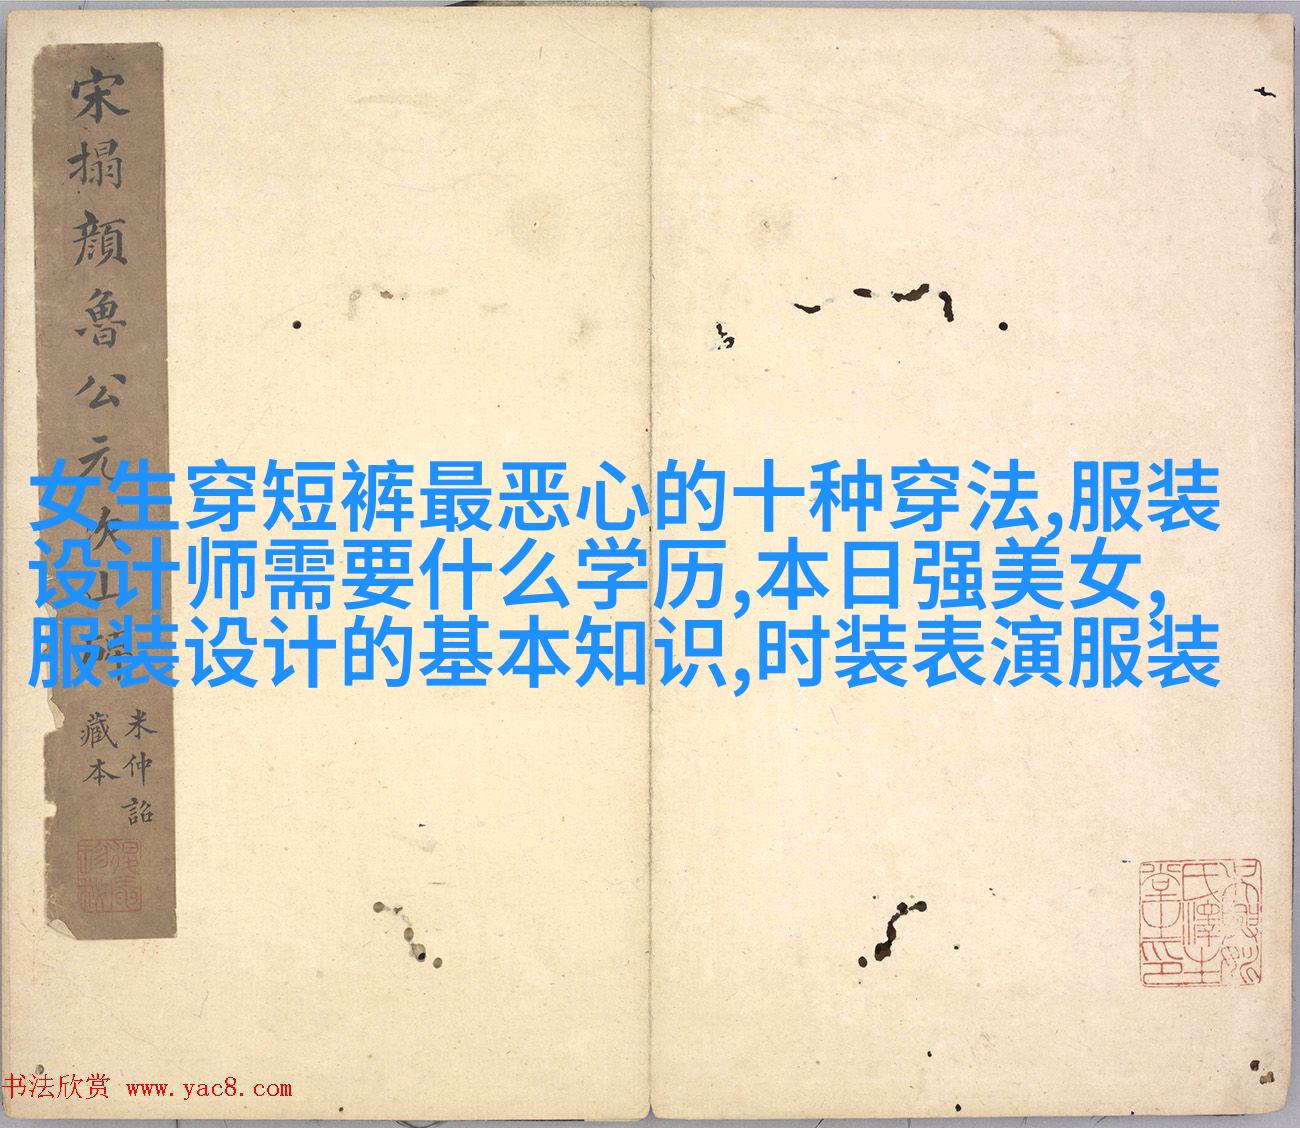 宋搨顔魯公元次山碑
米仲詔
藏本
女生穿短裤最恶心的十种穿法,服装
设计师需要什么学历,本日强美女,
服装设计的基本知识,时装表演服装
书法欣赏 www.yac8.com